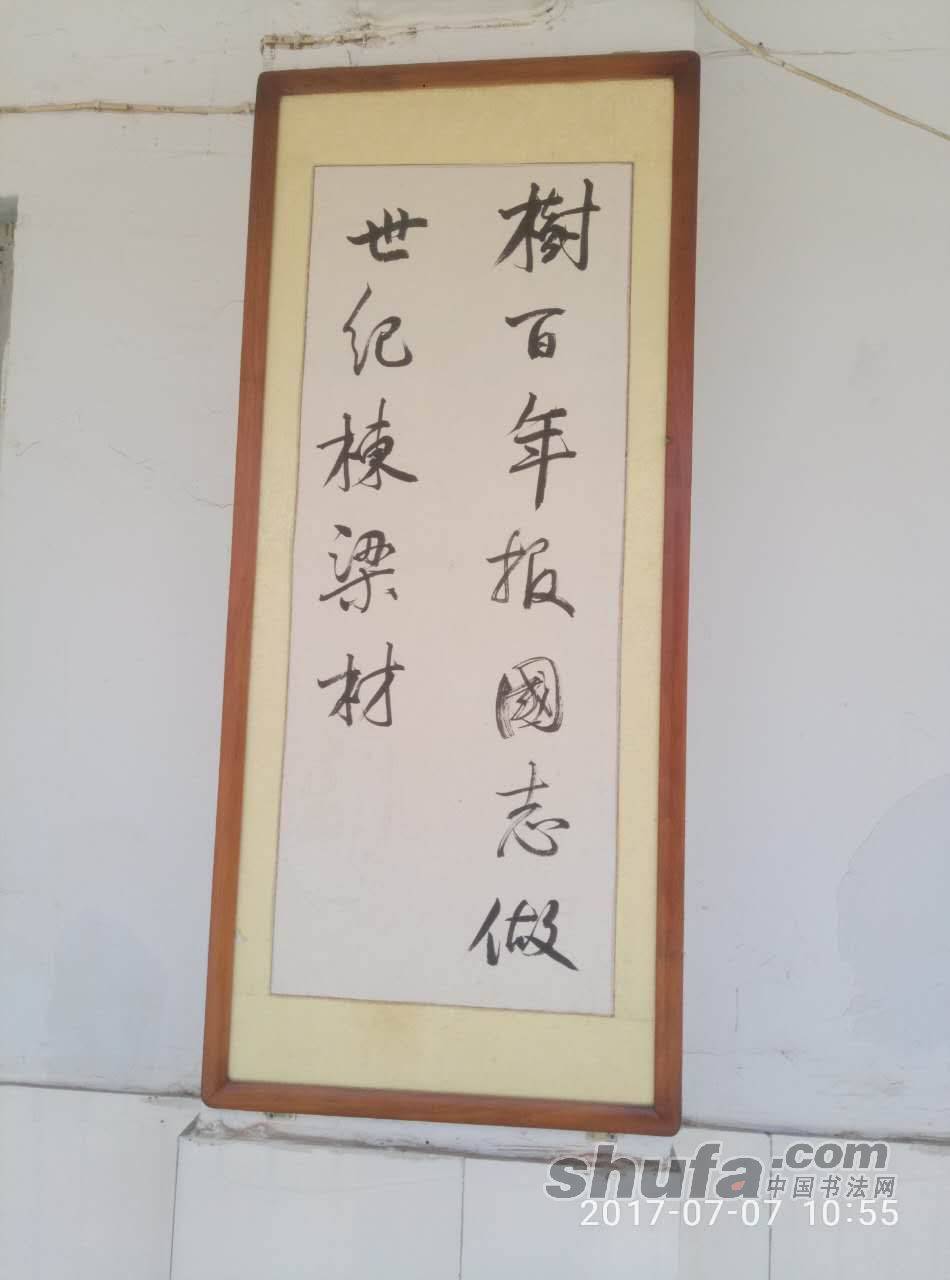 樹百年报國志做
世纪棟梁材
shufa.com
中国书法网
2017-07-07 10:55